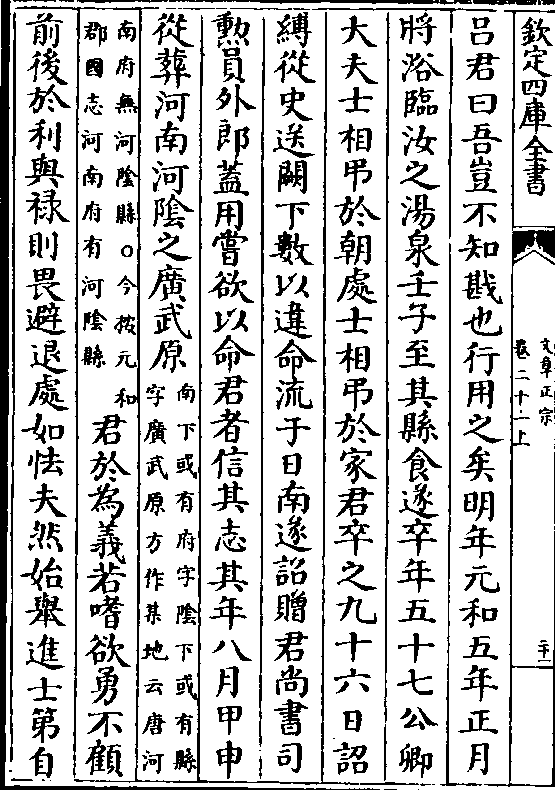 欽定四庫全書
文章正宗
卷二十一上
二十一
呂君曰吾豈不知戡也行用之矣明年元和五年正月
將浴臨汝之湯泉壬子至其縣食遂卒年五十七公卿
大夫士相弔於朝處士相弔於家君卒之九十六日詔
縛從史送闕下數以違命流于日南遂詔贈君尚書司
勲員外郎蓋用嘗欲以命君者信其志其年八月甲申
從葬河南河陰之廣武原
南下或有府字隂下或有縣
字廣武原方作某地云唐河
南府無河陰縣○今按元和
郡國志河南府有河陰縣
君於為義若嗜欲勇不顧
前後於利與祿則畏避退處如怯夫然始舉進士第自